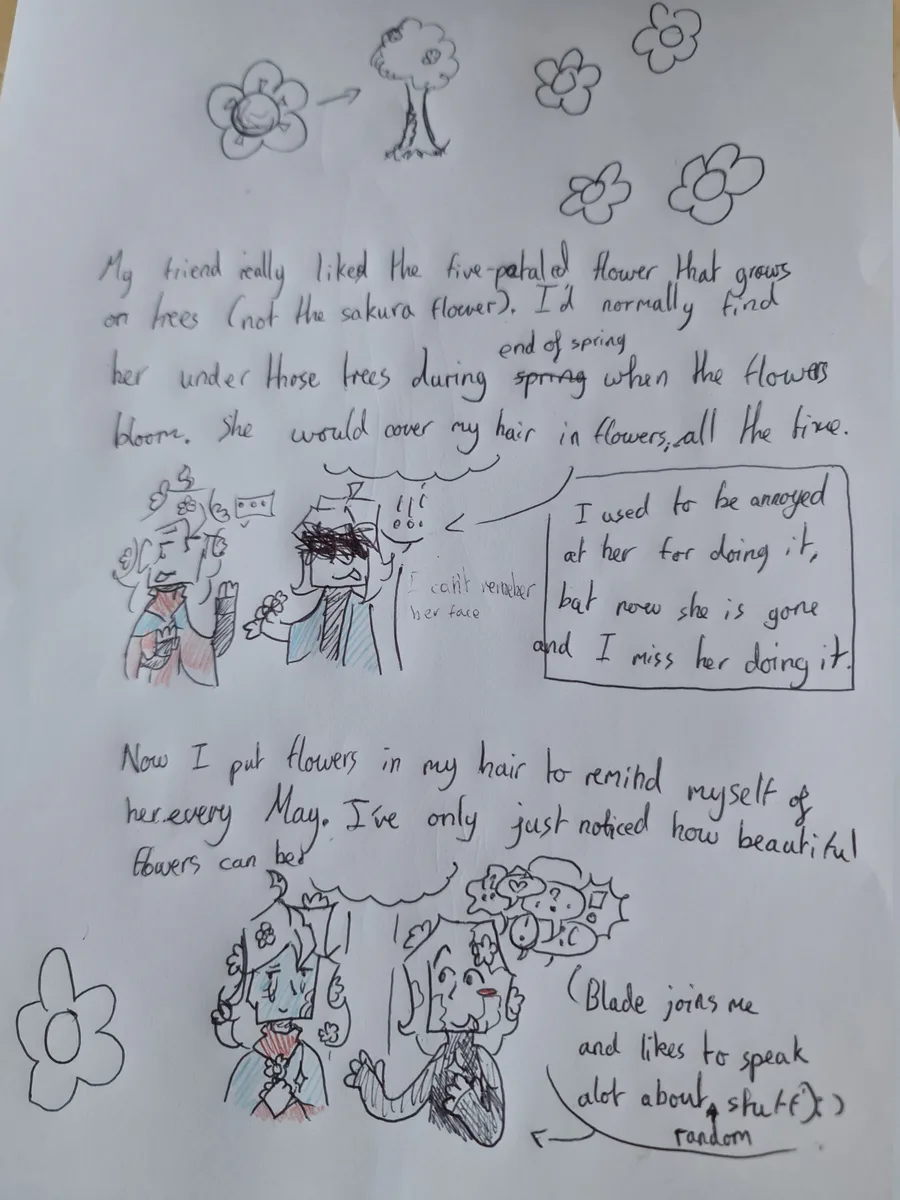 My friend really liked the five-petaled flower that grows
on trees (not the sakura flower). I'd normally find
end of spring
her under those trees during spring when the flowers
bloom. She would cover my hair in flowers, all the time.
I used to be annoyed
at her for doing it,
but now she is gone
and I miss her doing it.
I can't remember
her face
Now I put flowers in my hair to remind myself of
her every May. I've only just noticed how beautiful
flowers can be
(Blade joins me
and likes to speak
alot about stuff):)
random